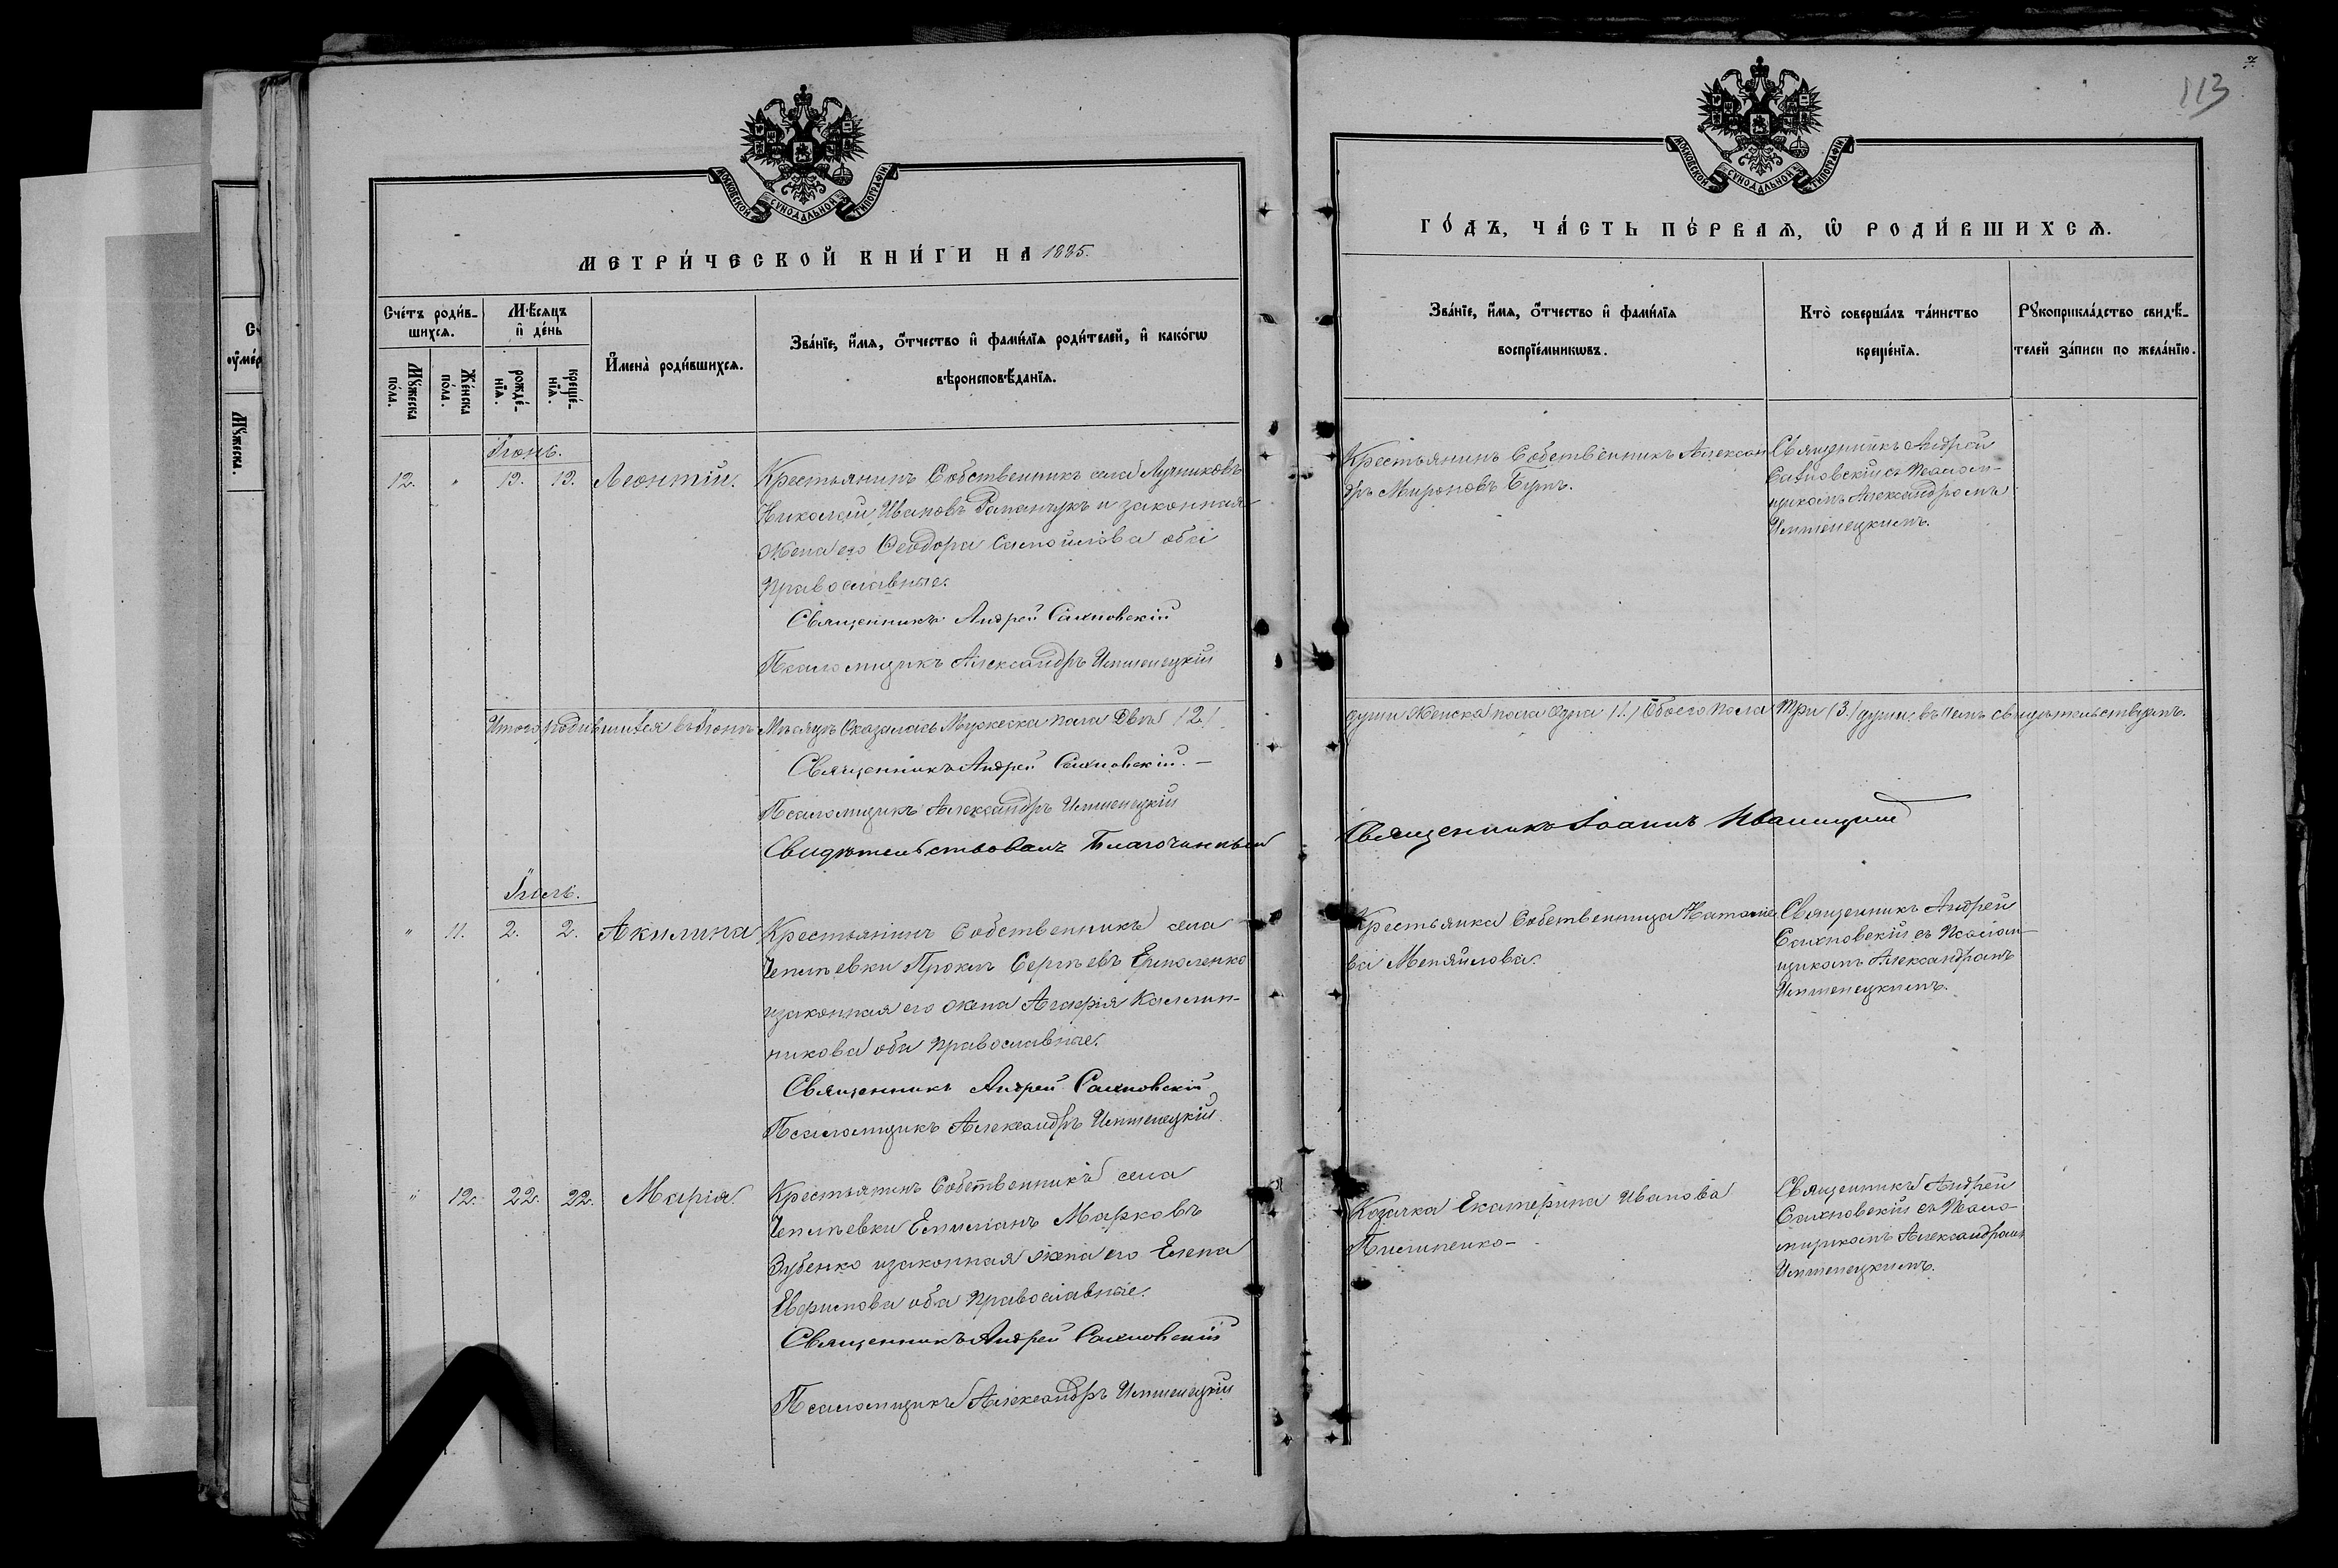 МОСКОВСКОЙ СУНОДАЛЬНОЙ ТИПОГРАФІИ
МЕТРИ́ЧЕСКОЙ КНИ́ГИ НА 1885.
Сче́тъ роди́в-
шихсѧ.
Мѣ́сѧцъ
и҆ де́нь
И҆мена̀ роди́вшихсѧ.
Зва́нїе, и҆́мѧ, ѻ҆́тчество и҆ фами́лїѧ роди́телей, и҆ како́гѡ
вѣроисповѣ́данїѧ.
Мꙋ́жеска
по́ла.
Же́нска
по́ла.
рожде́-
нїѧ.
креще́-
нїѧ.
Іюнь.
12. " 13. 13. Леонтій.
Крестьянинъ Собственникъ села Лучниковъ
Николай Ивановъ и законная
жена его Феодора Самойлова оба
Православные.
Священникъ Андрей Сахновскій
Псаломщикъ Александръ
Итого родившихся въ Іюнѣ Мѣсяцѣ Оказалось Мужеска пола Двѣ (2.)
Священникъ Андрей Сахновскій. —
Псаломщикъ Александръ
Свидѣтельствовалъ Благочинный
Іюль.
" 11. 2. 2. Акилина
Крестьянинъ Собственникъ села
Чепѣевки Прокопъ Сергѣевъ Ермоленко
изаконная его жена Агафія Каллин-
никова оба Православные.
Священникъ Андрей Сахновскій
Псаломщикъ Александръ
" 12. 22. 22. Марія
Крестьянинъ Собственникъ села
Чепѣевки Емиліанъ Марковъ
Зубенко изаконная жена его Елена
Евфимова оба Православные.
Священникъ Андрей Сахновскій
Псаломщикъ Александръ
7
113
МОСКОВСКОЙ СУНОДАЛЬНОЙ ТИПОГРАФІИ
ГО́ДЪ, ЧА́СТЬ ПЕ́РВАѦ, Ѽ РОДИ́ВШИХСѦ.
Зва́нїе, и҆́мѧ, ѻ҆́тчество и҆ фами́лїѧ
воспрїе́мникѡвъ.
Кто̀ соверша́лъ та́инство
креще́нїѧ.
Рꙋкоприкла́дство свидѣ́-
телей за́писи по жела́нїю.
Крестьянинъ Собственникъ Алексан
дръ Мироновъ
Священникъ Андрей
Сахновскій съ Псалом-
щикомъ Александромъ
души Женска пола Одна (1.) Обоего пола Три (3.) души, въ чемъ свидѣтельствуемъ.
Священникъ Іоаннъ
Крестьянка Собственница Наталіе
ва Меняйлова.
Священникъ Андрей
Сахновскій съ Псалом-
щикомъ Александромъ
Козачка Екатерина Иванова
Священникъ Андрей
Сахновскій съ Псало-
мщикомъ Александромъ